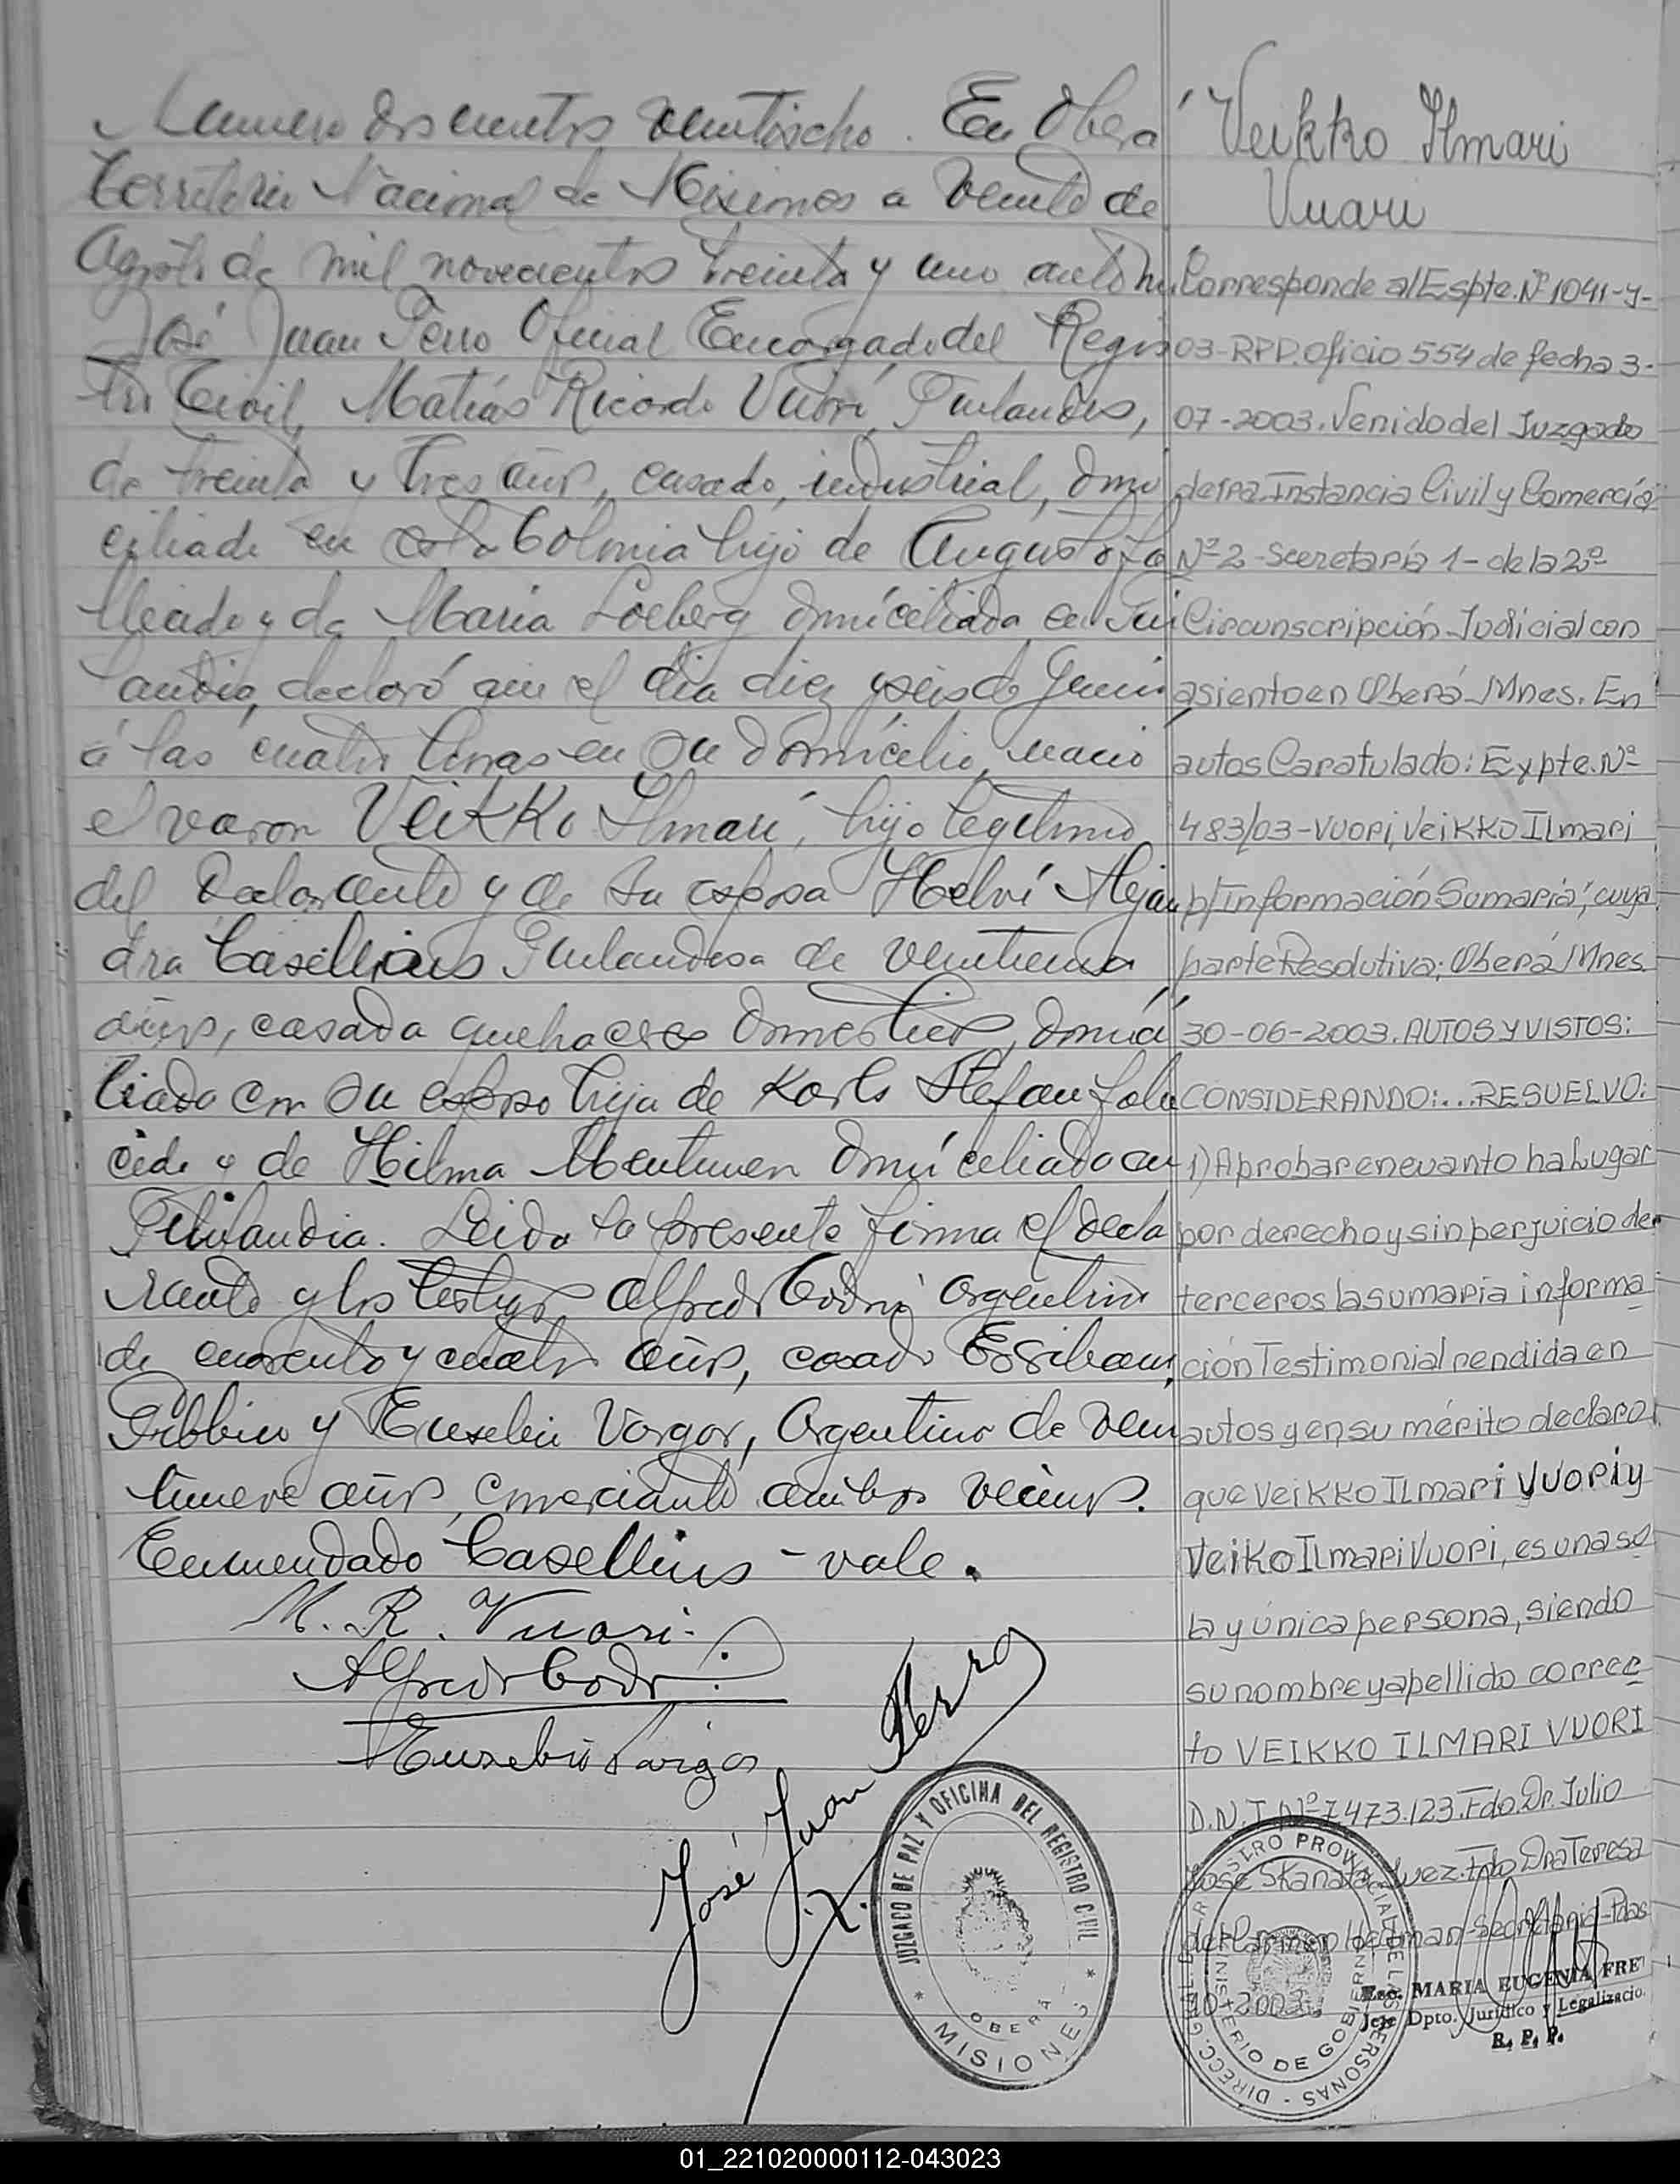 Numero doscientos veintiocho. En Oberá
Territorio Nacional de Misiones a veinte de
Agosto de mil novecientos treinta y uno ante mi
José Juan Ferro Oficial Encargado del Regis
tro Civil, Matías Ricardo Vuori, Finlandés,
de treinta y tres años, casado, industrial, domi
ciliado en esta Colonia hijo de Augusto fa
llecido y de Maria Loeberg domiciliada en Fin
landia, declaró que el dia diez y seis de Junio
á las cuatro horas en su domicilio, nació
el varon Veikko Ilmari, hijo legitimo
del declarante y de su esposa Helvi Alejan
dra Casellius Finlandesa de veintiun
años, casada quehaceres domesticos, domici
liada con su esposo hija de Karls Stefan falle
cido y de Hilma Mentunen domiciliado en
Finlandia. Leida la presente firma el decla
rante y los testigos Alfredo Codri argentino
de cuarenta y cuatro años, casado Escribano
Público y Eusebio Vargas, Argentino de vein
tinueve años, comerciante ambos vecinos.
Enmendado Casellius - vale.
M. R. Vuori.
Alfredo Codri
Eusebio Vargas
José Juan Ferro
JUZGADO DE PAZ Y OFICINA DEL REGISTRO CIVIL
OBERÁ
* MISIONES *
Veikko Ilmari
Vuari
Corresponde al Espte. Nº 1041-y-
03-RPP. Oficio 554 de fecha 3-
07-2003. Venido del Juzgado
de 1ra Instancia Civil y Comercial
Nº 2-Secretaría 1-de la 2º
Circunscripción Judicial con
asiento en Oberá-Mnes. En
autos Caratulado: Expte. Nº
483/03-Vuori, Veikko Ilmari
p/Información Sumaria", cuya
parte Resolutiva: Oberá Mnes
30-06-2003. AUTOS Y VISTOS:
CONSIDERANDO:...RESUELVO:
1) Aprobar en cuanto ha Lugar
por derecho y sin perjuicio de
terceros la sumaria informa
ción Testimonial rendida en
autos y en su mérito declaro
que Veikko ILmari VUORI y
Veiko Ilmari Vuori, es una so
la y única persona, siendo
su nombre y apellido correc
to VEIKKO ILMARI VUORI
D.N.I. Nº 7.473.123. Fdo. Dr. Julio
José Skanata Juez. Fdo Dra Teresa
del Carmen Hedman-Secretaria-Pdas
10-2003
DIRECC. GRAL. DEL REGISTRO PROVINCIAL DE LAS PERSONAS
MINISTERIO DE GOBIERNO
Esc. MARIA EUGENIA FRE
Jefe Dpto. Jurídico y Legalizacio.
R. P. P.
01_221020000112-043023